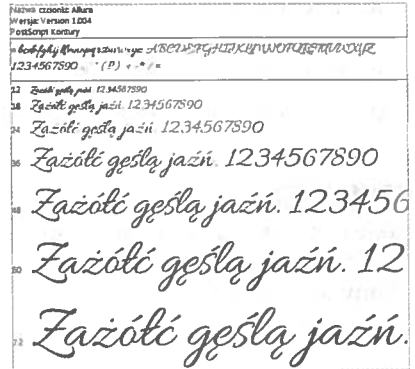 Nazwa czcionki: Allura
Wersja: Version 1.004
PostScript Kontury
1234567890
12 Zażółć gęślą jaźń. 1234567890
18 Zażółć gęślą jaźń. 1234567890
24 Zażółć gęślą jaźń. 1234567890
36 Zażółć gęślą jaźń. 1234567890
48 Zażółć gęślą jaźń. 123456
60 Zażółć gęślą jaźń. 12
72 Zażółć gęślą jaźń.